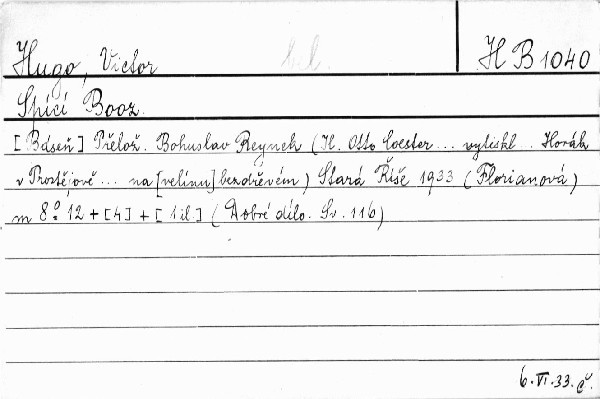 Hugo, Victor H B 1040
Spící Booz.
[Báseň] Přelož. Bohuslav Reynek (Il. Otto Coester ... vytiskl .. Horák
v Prostějově ... na [velínu] bezdřevém) Stará Říše 1933 (Florianová)
m 8° 12 + [4] + [1 il.] (Dobré dílo. Sv. 116)
6. VI. 33. č.